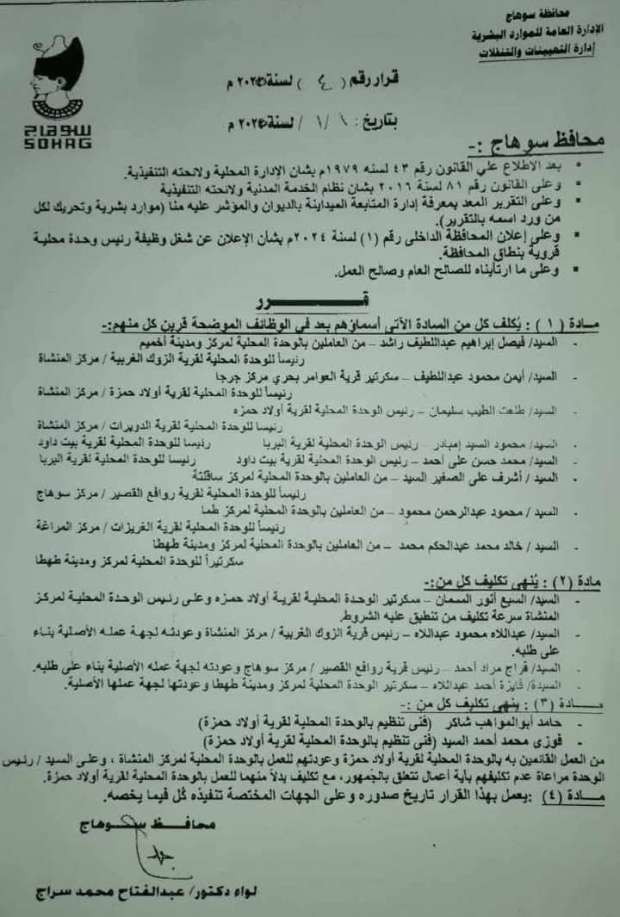 محافظة سوهاج
الإدارة العامة للموارد البشرية
إدارة التعيينات والتنقلات
سوهاج
SOHAG
قرار رقم ( ٤ ) لسنة ٢٠٢٥ م
بتاريخ : ١ / ١ / لسنة ٢٠٢٥ م
محافظ سوهاج :-
▪ بعد الاطلاع علي القانون رقم ٤٣ لسنه ١٩٧٩م بشان الإدارة المحلية ولائحته التنفيذية.
▪ وعلى القانون رقم ٨١ لسنة ٢٠١٦ بشان نظام الخدمة المدنية ولائحته التنفيذية
▪ وعلى التقرير المعد بمعرفة إدارة المتابعة الميداينة بالديوان والمؤشر عليه منا (موارد بشرية وتحريك لكل
من ورد اسمه بالتقرير).
▪ وعلى إعلان المحافظة الداخلى رقم (١) لسنة ٢٠٢٤م بشأن الإعلان عن شغل وظيفة رئيس وحدة محلية
قروية بنطاق المحافظة.
▪ وعلى ما ارتأيناه للصالح العام وصالح العمل.
قـــــــرر
مـادة ( ١ ) : يُكلف كل من السادة الآتى أسماؤهم بعد في الوظائف الموضحة قرين كل منهم:-
- السيد/ فيصل إبراهيم عبداللطيف راشد – من العاملين بالوحدة المحلية لمركز ومدينة أخميم
رئيساً للوحدة المحلية لقرية الزوك الغربية / مركز المنشاة
- السيد/ أيمن محمود عبداللطيف – سكرتير قرية العوامر بحري مركز جرجا
رئيساً للوحدة المحلية لقرية أولاد حمزة / مركز المنشاة
- السيد/ طلعت الطيب سليمان – رئيس الوحدة المحلية لقرية أولاد حمزه
رئيسا للوحدة المحلية لقرية الدويرات / مركز المنشاة
- السيد/ محمود السيد إمبادر – رئيس الوحدة المحلية لقرية البربا رئيسا للوحدة المحلية لقرية بيت داود
- السيد/ محمد حسن على أحمد – رئيس الوحدة المحلية لقرية بيت داود رئيسا للوحدة المحلية لقرية البربا
- السيد / أشرف على الصغير السيد – من العاملين بالوحدة المحلية لمركز ساقلتة
رئيساً للوحدة المحلية لقرية روافع القصير / مركز سوهاج
- السيد / محمود عبدالرحمن محمود – من العاملين بالوحدة المحلية لمركز طما
رئيساً للوحدة المحلية لقرية الغريزات / مركز المراغة
- السيد / خالد محمد عبدالحكم محمد – من العاملين بالوحدة المحلية لمركز ومدينة طهطا
سكرتيراً للوحدة المحلية لمركز ومدينة طهطا
مادة (٢) : يُنهى تكليف كل من:-
- السيد/ السيع أنور السمان – سكرتير الوحدة المحلية لقرية أولاد حمزه وعلى رئيس الوحدة المحلية لمركز
المنشاة سرعة تكليف من تنطبق عليه الشروط.
- السيد/ عبداللاه محمود عبداللاه – رئيس قرية الزوك الغربية / مركز المنشاة وعودته لجهة عمله الأصلية بناء
على طلبه.
- السيد/ فراج مراد أحمد – رئيس قرية روافع القصير / مركز سوهاج وعودته لجهة عمله الأصلية بناء على طلبه.
- السيدة/ فايزة أحمد عبداللاه – سكرتير الوحدة المحلية لمركز ومدينة طهطا وعودتها لجهة عملها الأصلية.
مـــادة (٣) : ينهى تكليف كل من :-
- حامد أبوالمواهب شاكر (فنى تنظيم بالوحدة المحلية لقرية أولاد حمزة)
- فوزى محمد أحمد السيد (فنى تنظيم بالوحدة المحلية لقرية أولاد حمزة)
من العمل القائمين به بالوحدة المحلية لقرية أولاد حمزة وعودتهم للعمل بالوحدة المحلية لمركز المنشاة ، وعلى السيد / رئيس
الوحدة مراعاة عدم تكليفهم بأية أعمال تتعلق بالجمهور، مع تكليف بدلاً منهما للعمل بالوحدة المحلية لقرية أولاد حمزة.
مـــادة (٤) :يعمل بهذا القرار تاريخ صدوره وعلى الجهات المختصة تنفيذه كُل فيما يخصه.
محافـــظ ســـوهاج
لواء دكتور/ عبدالفتاح محمد سراج